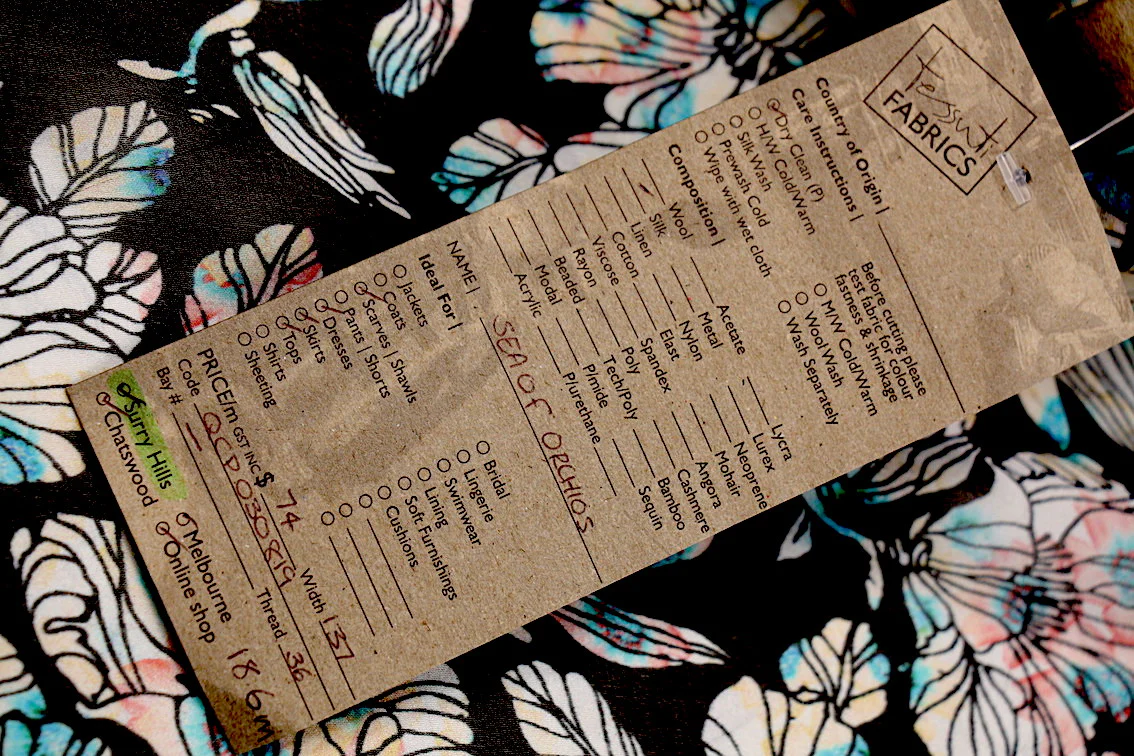 Tessuti
FABRICS
Country of Origin |
Care Instructions |
Dry Clean (P)
H/W Cold/Warm
Silk Wash
Prewash Cold
Wipe with wet cloth
Before cutting please
test fabric for colour
fastness & shrinkage
M/W Cold/Warm
Wool Wash
Wash Separately
Composition |
Wool
Silk
Linen
Cotton
Viscose
Rayon
Beaded
Modal
Acrylic
Acetate
Metal
Nylon
Elast
Spandex
Poly
Tech/Poly
P/mide
P/urethane
Lycra
Lurex
Neoprene
Mohair
Angora
Cashmere
Bamboo
Sequin
NAME | SEA OF ORCHIDS
Ideal For |
Jackets
Coats
Scarves | Shawls
Pants | Shorts
Dresses
Skirts
Tops
Shirts
Sheeting
Bridal
Lingerie
Swimwear
Lining
Soft Furnishings
Cushions
PRICE/m GST INC $ 74 Width 137
Code QCD030819 Thread 36
Bay #
Surry Hills Melbourne
Chatswood Online shop
18.6m